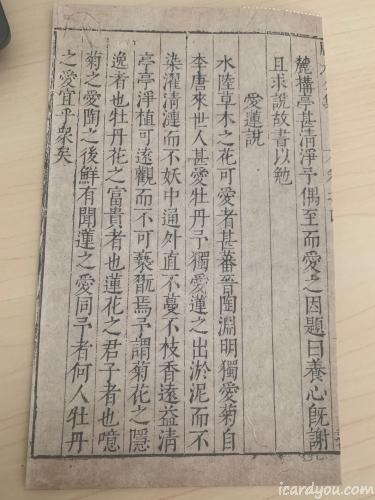 麓搆亭甚清淨予偶至而愛之因題曰養心旣謝
且求說故書以勉
愛蓮說
水陸草木之花可愛者甚蕃晉陶淵明獨愛菊自
李唐來世人甚愛牡丹予獨愛蓮之出淤泥而不
染濯清漣而不妖中通外直不蔓不枝香遠益清
亭亭淨植可遠觀而不可褻翫焉予謂菊花之隱
逸者也牡丹花之富貴者也蓮花之君子者也噫
菊之愛陶之後鮮有聞蓮之愛同予者何人牡丹
之愛宜乎衆矣
icardyou.com